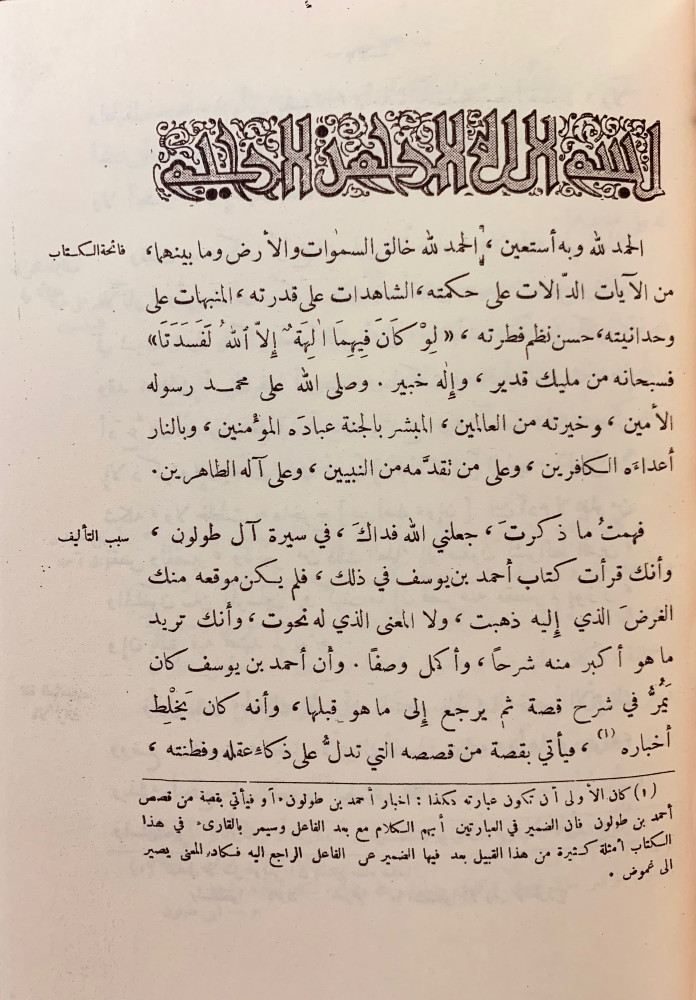 بسم الله الرحمن الرحيم
الحمد لله وبه أستعين ، الحمد لله خالق السمٰوات والأرض وما بينهما،
فاتحة الكتاب
من الآيات الدّالات على حكمته، الشاهدات على قدرته ، المنبهات على
وحدانيته، حسن نظم فطرته ، « لَوْ كَانَ فِيهِمَا آلِهَةٌ إِلاَّ ٱللهُ لَفَسَدَتَا »
فسبحانه من مليك قدير ، وإِلٰه خبير . وصلى الله على محمد رسوله
الأمين ، وخيرته من العالمين ، المبشر بالجنة عبادَه المؤمنين ، وبالنار
أعداءَه الكافرين ، وعلى من تقدَّمه من النبيين ، وعلى آله الطاهرين.
فهمتُ ما ذكرتَ ، جعلني الله فداكَ ، في سيرة آل طولون ،
سبب التأليف
وأنك قرأت كتاب أحمد بن يوسف في ذلك ، فلم يكن موقعه منك
الغرضَ الذي إِليه ذهبت ، ولا المعنى الذي له نحوت ، وأنك تريد
ما هو أكبر منه شرحاً ، وأكمل وصفاً . وأن أحمد بن يوسف كان
يَمُرُّ في شرح قصة ثم يرجع إِلى ما هو قبلها ، وأنه كان يَخْلِط
أخباره (١) ، فيأتي بقصة من قصصه التي تدلُّ على ذكاء عقله وفطنته ،
(١) كان الأولى أن تكون عبارته هكذا : اخبار أحمد بن طولون ، أو فيأتي بقصة من قصص
أحمد بن طولون فان الضمير في العبارتين أبهم الكلام مع بعد الفاعل وسيمر بالقارىء في هذا
الكتاب أمثلة كثيرة من هذا القبيل بعد فيها الضمير عن الفاعل الراجع اليه فكاد المعنى يصير
الى غموض .